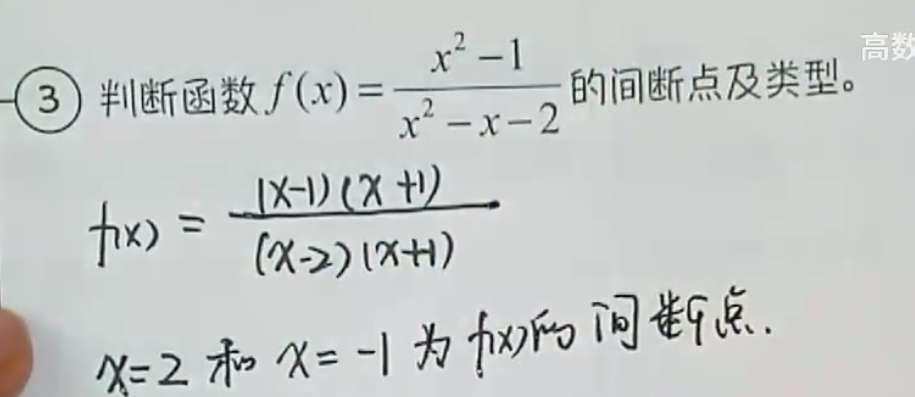 高数
③ 判断函数 f(x) = \frac{x^2-1}{x^2-x-2} 的间断点及类型。
f(x) = \frac{(x-1)(x+1)}{(x-2)(x+1)}
x=2 和 x=-1 为 f(x)的间断点.